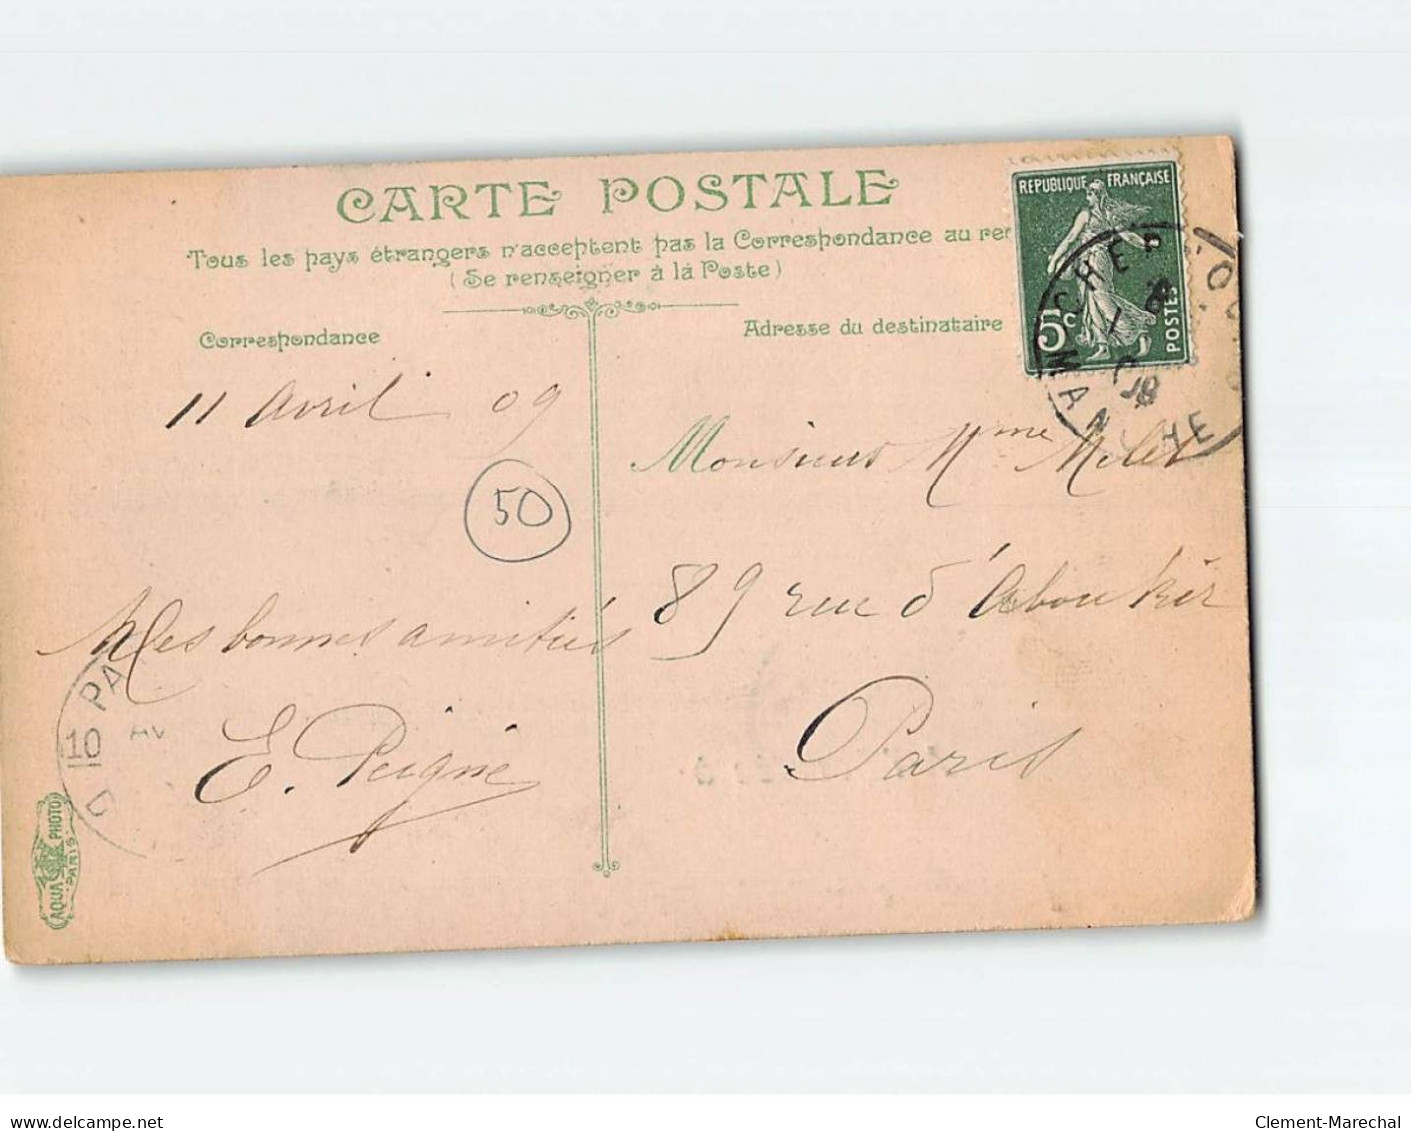 CARTE POSTALE
Tous les pays étrangers n'acceptent pas la Correspondance au rec
(Se renseigner à là Poste)
Correspondance
Adresse du destinataire
RÉPUBLIQUE FRANÇAISE
5c
POSTES
MANCHE
11 avril 09
50
Mes bonnes amitiés
E. Peigné
Monsieur Mme Milet
89 rue d'Aboukir
Paris
PA
10 AV
AQUA PHOTO
PARIS
delcampe.net
Clement-Marechal